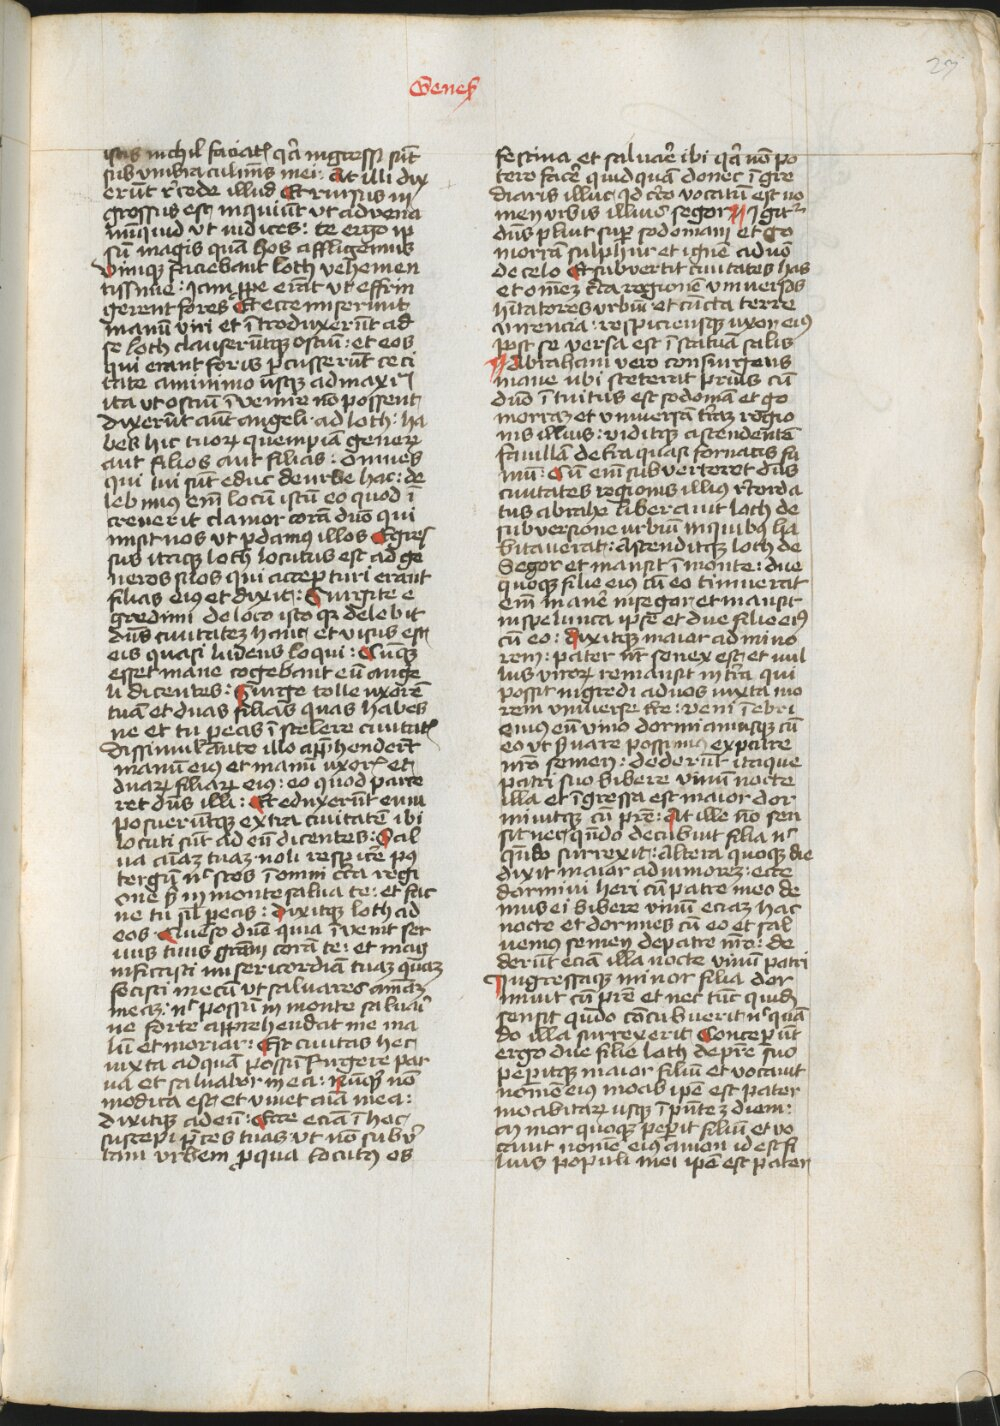 Genes
27
istis nichil faciatꝭ q̃a ingressi sūt
sub umbra culmīs mei. At illi dix
erūt r̃cede illud Et rursus in
gressus est inquiūt ut advena
nūquid ut iudices: te ergo ip
sū magis quā hos affligemus
Vimqꝫ faciebant loth vehemen
tissime: Jam ꝓpe erāt ut effrin
gerent fores Et ecce miserunt
manū viri et ītroduxerūt ad
se loth clauserūtqꝫ ostiū: et eos
qui erant foris ꝑcusserūt ceci
tate a minimo usqꝫ ad maxim̃
ita ut ostiū īvenire nō possent
Dixerūt aūt angeli ad loth: ha
bes hic tuorꝝ quempiā generꝝ
aut filios aut filias: Omnes
qui tui sūt educ de urbe hac: de
lebimus em̄ locū istū eo quod ī
creverit clamor corā dn̄o qui
misit nos ut ꝑdamꝰ illos Egres
sus itaqꝫ loth locutus est ad ge
neros suos qui accepturi erant
filias eiꝰ et dixit: Surgite e
gredimi de loco isto qꝛ delebit
dn̄s civitatez hanc et visus est
eis quasi ludens loqui: Cumqꝫ
esset mane cogebant eū ange
li dicentes: Surge tolle uxorē
tuā et duas filias quas habes
ne et tu pereas ī scelere civitatꝭ
Dissimulante illo app̃henderūt
manū eiꝰ et manū uxorꝭ et
duarꝝ filiarꝝ eiꝰ: eo quod parce
ret dn̄s illi: Et eduxerūt eum
posuerūtqꝫ extra civitatē ibi
locuti sūt ad eū dicentes: Sal
va aīaz tuaz noli respicẽ pꝰ
tergū nc̄ stes ī omni cir̃ca regi
one s̄ in monte salva te: et sac
ne tu sil̄ pereas: Dixitqꝫ loth ad
eos. Queso dn̄e quia īvenit ser
vus tuus grām corā te: et mag
nificasti misericordiā tuaz quaz
fecisti mecū ut salvares aīaz
meaz: nc̄ possū in monte salvari
ne forte apprehendat me ma
lū et moriar: Est civitas hec
iuxta ad quā possū fugere par
va et salvabor in ea: nūqꝫ nō
modica est et vivet aīa mea:
Dixitqꝫ ad eū: Ecce eciā ī hoc
suscepi p̃ces tuas ut nō subv̓
tam urbem ꝓ qua locutꝰ es
festina et salvaẽ ibi q̃a nō po
tero facẽ quidquā donec īgre
diaris illuc qd̓ c̓co vocatū est no
men urbis illiuꝰ segor Igit̃
dn̄s pluit suꝑ sodomam et go
morrā sulphur et ignē a dn̄o
de celo Et subvertit civitates has
et omēz c̃ca regionē universos
hītatores urbiū et cūcta terre
virencia: respiciensqꝫ uxor eiꝰ
post se versa est ī statuā salis
Abraham vero consurgens
mane ubi steterat prius cū
dn̄o ītuitus est sodomā et go
morraz et universā tr̄az regio
nis illius: viditqꝫ ascendentē
favillā de tr̄a quasi fornacis fu
mū: Cū em̄ subverteret dn̄s
civitates regionis illiꝰ r̃corda
tus abrahe liberavit loth de
subversione urbiū in quibꝰ ha
bitaverat: Ascenditqꝫ loth de
Segor et mansit ī monte: due
quoqꝫ filie eiꝰ cū eo timuerat
em̄ manẽ in segor et mansit
in spelunca ip̄e et due filie eiꝰ
cū eo: Dixitqꝫ maior ad mino
rem: pater nr̄ senex est et nul
lus virorꝝ remansit in tr̄a qui
possit ingredi ad nos iuxta mo
rem universe tr̄e: veni īebri
emus eū vino dormiamusqꝫ cū
eo ut s̓vare possimꝰ ex patre
nr̄o semen: dederūt itaque
patri suo bibere vinū nocte
illa et īgressa est maior dor
mivitqꝫ cū pr̄e: At ille nō sen
sit neqꝫ qn̄do decubuit filia nc̄
qn̄do surrexit: Altera quoqꝫ die
dixit maior ad minorez: ecce
dormivi heri cū patre meo de
mus ei bibere vinū eciaz hac
nocte et dormies cū eo et sal
vemus semen de patre nr̄o: de
derūt eciā illa nocte vinū patri
Ingressaqꝫ minor filia dor
mivit cū pr̄e et nec tūc quidē
sensit qn̄do cōcubuerit nc̄ quā
do illa surrexerit: Conceperūt
ergo due filie loth de pr̄e suo
peperitqꝫ maior filiū et vocavit
nomē eiꝰ moab ip̄e est pater
moabitarꝝ usqꝫ ī p̄ntez diem:
minor quoqꝫ peperit filiū et vo
cavit nomē eiꝰ amon id est fi
lius populi mei ip̄e est pater